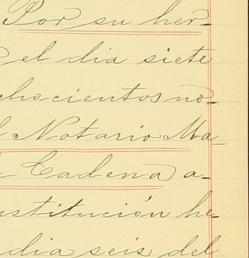 Por su her-
el dia siete
chocientos no-
l Notario Ma-
Cadena a-
stitución he-
dia seis del